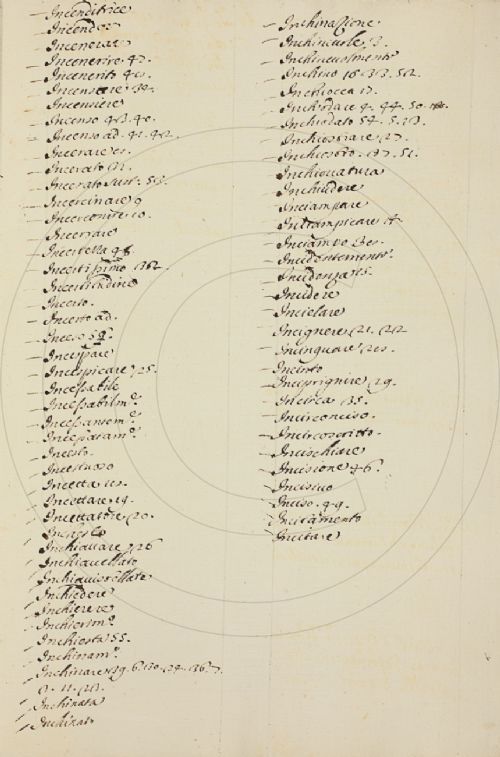 Incenditrice
Incendor
Incenerare
Incenerire 42.
Incenerito 40.
Incensare 34.
Incensiere
Incenso 43. 40.
Incenso ad. 41. 42.
Incerare
Incerato
Incerato Sust.
Incercinare 9
Incerconire 10.
Incerrare
Incertella 48
Incertissimo
Incertitudine
Incerto.
Incerto ad.
Inceso 52.
Incespare
Incespicare 25.
Incessabile
Incessabilm.e
Incessantem.e
Incessatam.e
Incesto.
Incestuoso
Incetta
Incettare 19.
Incettatore 20.
Inchiavare 26
Inchiavellato
Inchiavistellare
Inchiedere
Inchierere
Inchiesta 55.
Inchinam.o
Inchinare
Inchinata
Inchinato
Inchinazione
Inchinevole 3.
Inchinevolmente
Inchino 16. 33. 52.
Inchiocca 17.
Inchiodare 4. 44. 50.
Inchiodato 54.
Inchiostrare 27.
Inchiostro 51.
Inchiovatura
Inchiudere
Inciampare
Inciampicare
Inciampo 30.
Incidentemente
Incidenza
Incidere
Incielare
Incignere 21. 22
Incinquare 20.
Incinto
Inciprignire 29.
Incirca 35.
Incirconciso.
Incircoscritto.
Incischiare
Incisione 46.
Incisivo
Inciso. 49.
Incitamento
Incitare